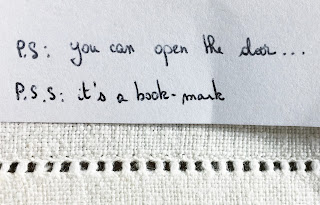 P.S: you can open the door...
P.S.S: it's a book-mark